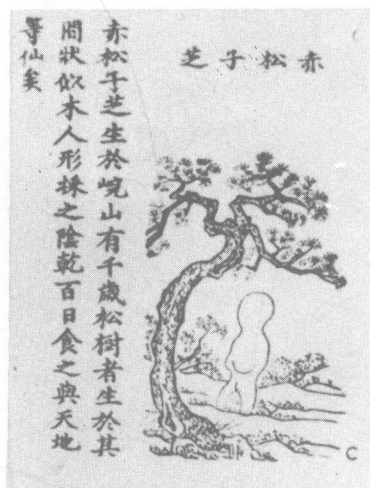 赤松子芝
赤松子芝生於峴山有千歲松樹者生於其
間狀似木人形採之陰乾百日食之與天地
等仙矣
C